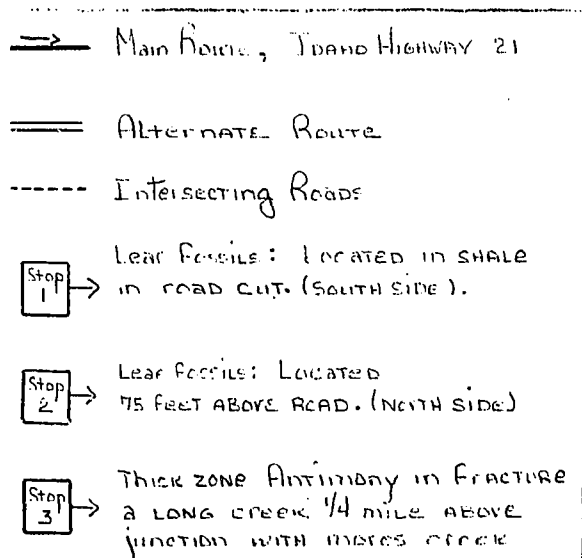 Main Route, Idaho Highway 21
Alternate Route
Intersecting Roads
Stop 1
Leaf Fossils: Located in shale
in road cut. (South side).
Stop 2
Leaf Fossils: Located
75 feet above road. (North side)
Stop 3
Thick zone Antimony in fracture
a long creek 1/4 mile above
junction with mores creek